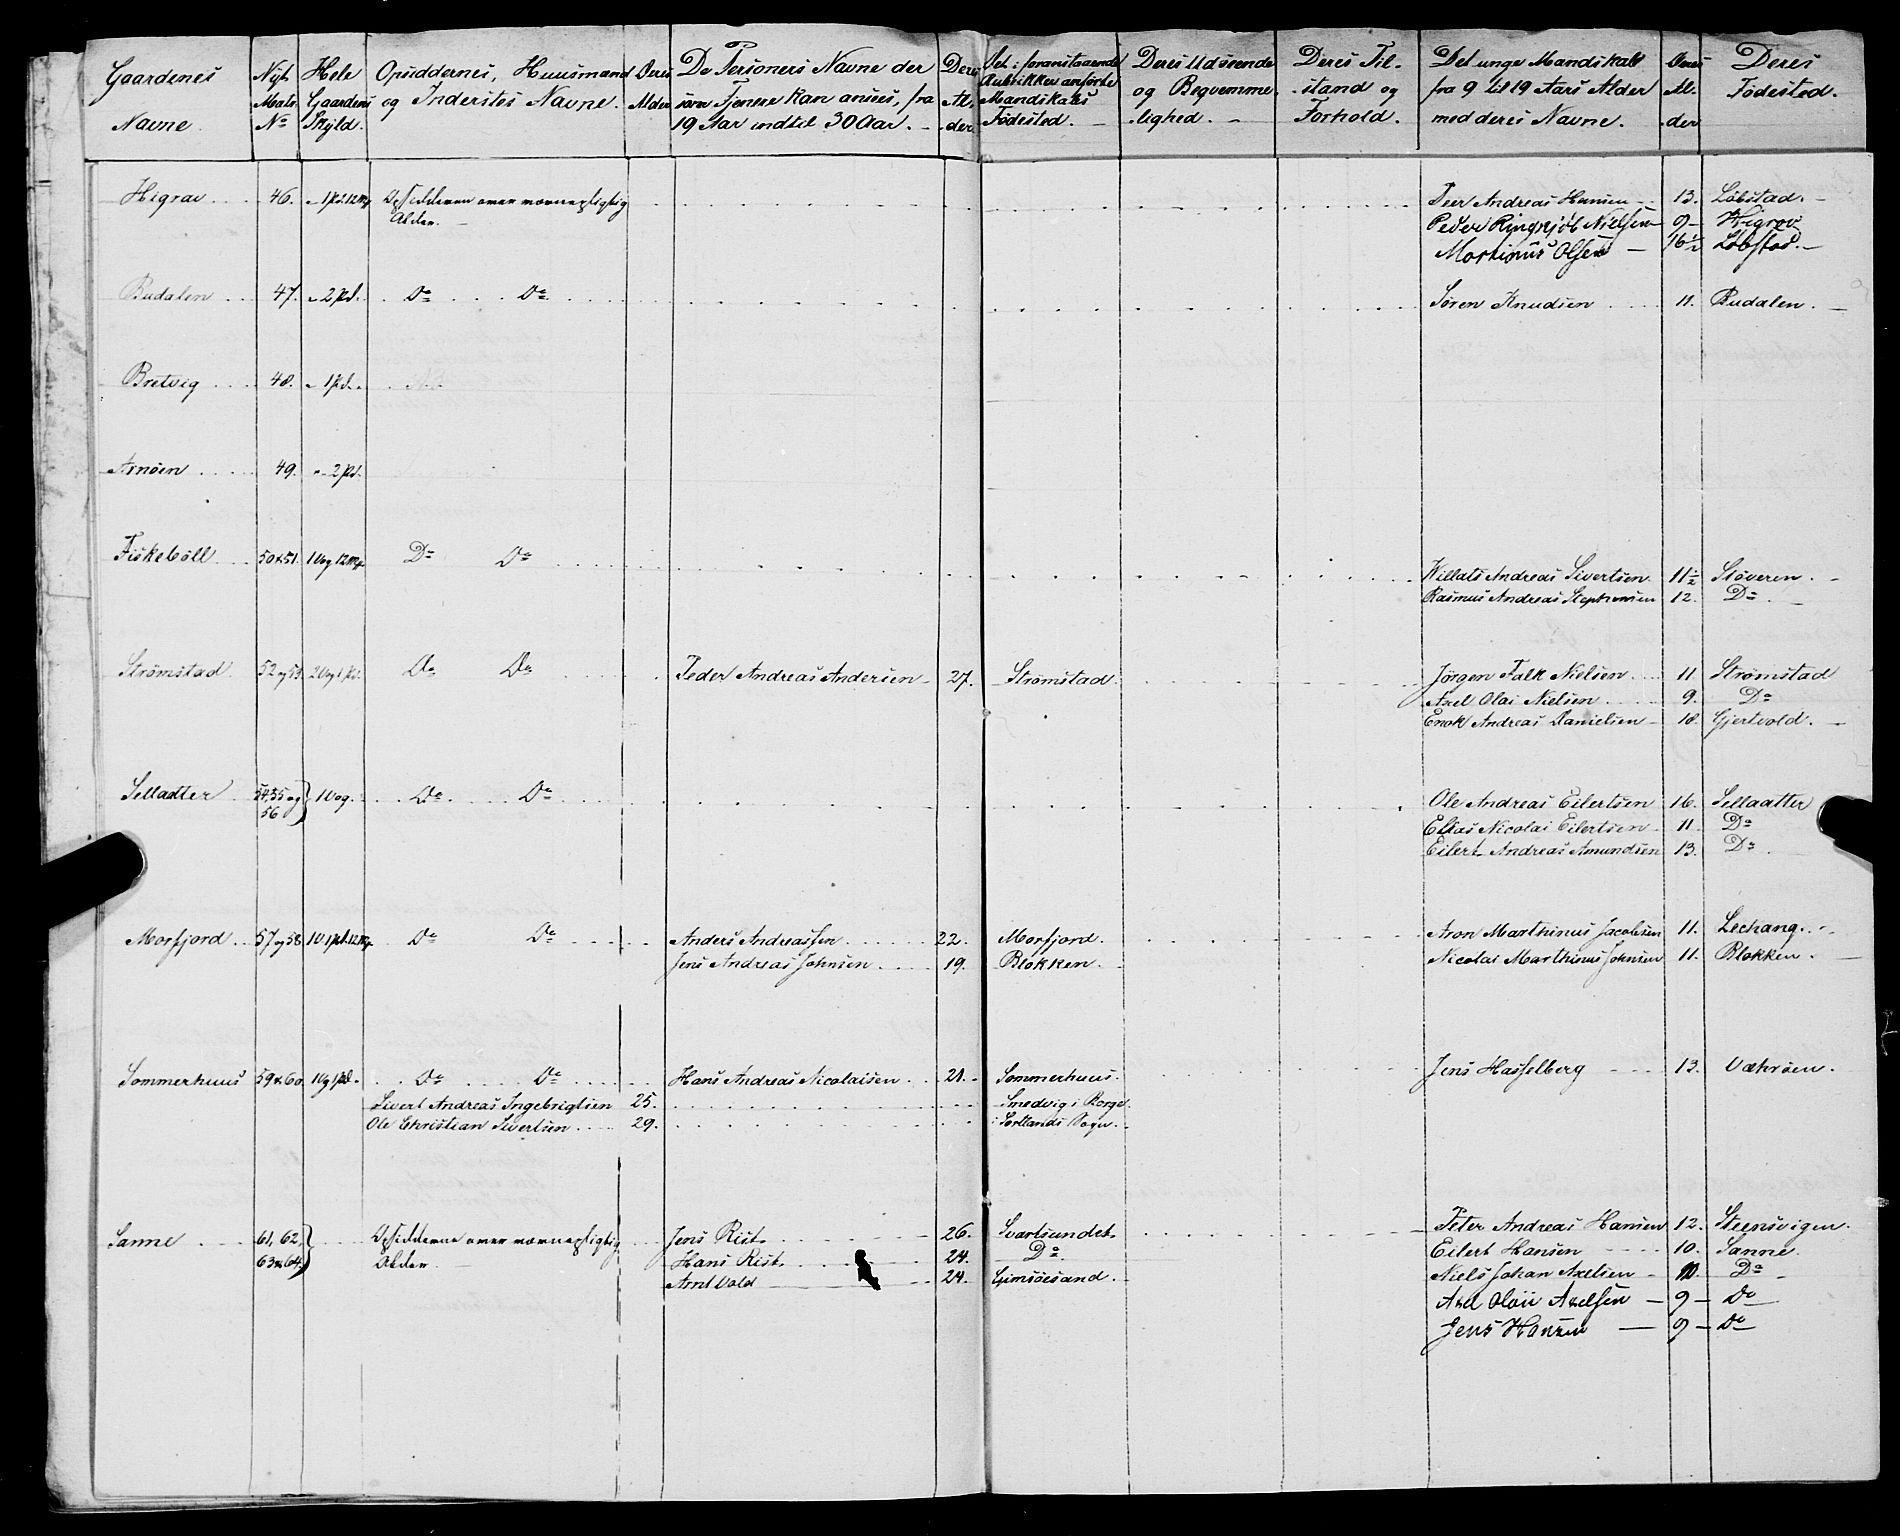 Gaardenes Navne. | Nyt Matr. No | Hele Gaardens Skyld. | Opsiddernes, Huusmænd og Inderstes Navne. | Deres Alder | De Personers Navne der som Tjenere kan ansees, fra 19 Aar indtil 30 Aar. | Deres Al-der. | Det i foranstaaende Rubrikker anførte Mandskabs Födested. | Deres Udseende og Beqvemme-lighed. | Deres Til-stand og Forhold. | Det unge Mandskab fra 9 til 19 Aars Alder med deres Navne. | Deres Al-der | Deres Födested.
Higrav | 46. | 1 pd. 12 Mk | Opsidderen over værnepligtig | Peer Andreas Hansen | 13. | Löbstad.
Alder. | Peder Ringskjöb Nielsen | 9 | Higrav
Martinus Olsen | 16½ | Löbstad.
Budalen | 47. | 2 pd. | Do Do | Sören Knudsen | 11. | Budalen.
Bretvig | 48. | 1 pd.
Arnöen | 49. | 2 pd.
Fiskeböll | 50 & 51. | 1 Vog 12 Mk. | Do Do | Willats Andreas Sivertsen | 11½ | Stöveren.
Rasmus Andreas Stephensen | 12. | Do
Strömstad | 52 og 53 | 2 Vog 1 pd. | Do Do | Peder Andreas Andersen | 27. | Strömstad. | Jörgen Falk Nielsen | 11 | Strömstad
Axel Olai Nielsen | 9. | Do
Enok Andreas Danielsen | 18. | Gjertvold.
Sellaatter | 54, 55 og 56 | 1 Vog. | Do Do | Ole Andreas Eilertsen | 16. | Sellaatter
Elias Nicolai Eilertsen | 11. | Do
Eilert Andreas Amundsen | 13. | Do
Morfjord | 57 og 58 | 1 V 1 pd. 12 Mk. | Do Do | Anders Andreassen | 22. | Morfjord. | Aron Marthinus Jacobsen | 11. | Lechang.
Jens Andreas Johnsen | 19. | Blokken. | Nicolai Marthinus Johnsen | 11. | Blokken.
Sommerhuus | 59 & 60. | 1 Vg 1 pd. | Do Do | Hans Andreas Nicolaisen | 21. | Sommerhuus. | Jens Hasselberg | 13. | Væhröen.
Sivert Andreas Ingebrigtsen | 25. | Smedvig i Borge.
Ole Christian Sivertsen | 29. | i Sortlands Sogn.
Sanne | 61, 62, 63 & 64. | Opsidderne over værnepligtig | Jens Rist | 26. | Svartsundet. | Peter Andreas Hansen | 12. | Steensvigen.
Alder. | Hans Rist. | 24. | Do | Eilert Hansen | 10. | Sanne
Arnt Vold | 24. | Gimsöesand. | Niels Johan Axelsen | 10. | Do
Axel Olaii Axelsen | 9 | Do
Jens Hansen | 9 | Do